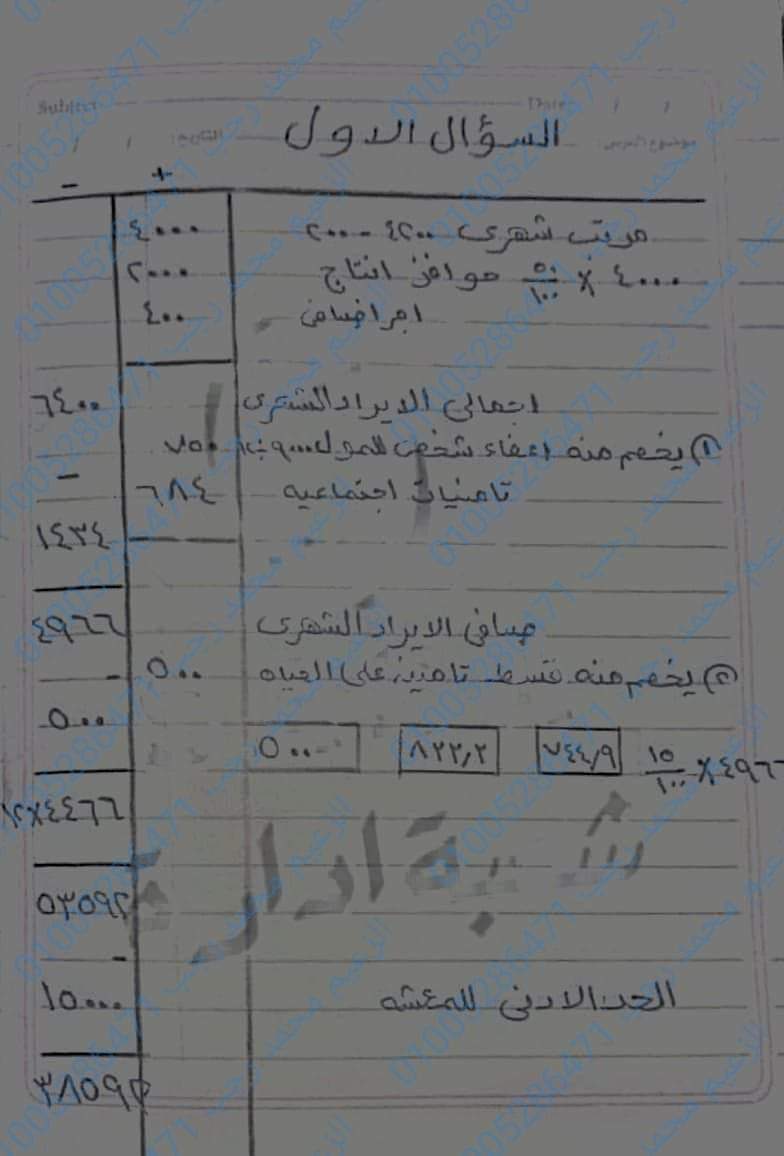 Subject
Date / /
موضوع الدرس
التاريخ: / /
السؤال الاول
+ -
مرتب شهرى ٤٢٠٠ - ٢٠٠ ٤٠٠٠
٤٠٠٠ × ٥٠/١٠٠ حوافز انتاج ٢٠٠٠
اجر اضافى ٤٠٠
اجمالى الايراد الشهرى ٦٤٠٠
① يخصم منه اعفاء شخصى للممول ٩٠٠٠ ÷ ٧٥٠
-
تامنيات اجتماعيه ٦٨٤
١٤٣٤
صافى الايراد الشهرى ٤٩٦٦
② يخصم منه قسط تامين على الحياه ٥٠٠ -
٥٠٠
٤٩٦٦ × ١٥/١٠٠ ٧٤٤,٩ ٨٣٣,٣ ٥٠٠
٤٤٦٦ × ١٢
شعبة ادارة
٥٣٥٩٢
-
الحد الادنى للمعشه ١٥٠٠٠
٣٨٥٩٢
الزعيم محمد رجب 01005286471